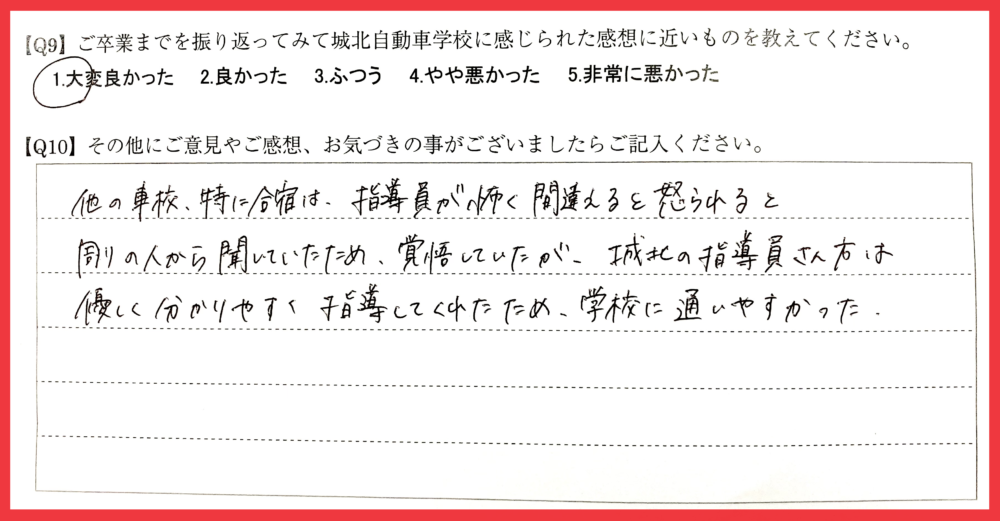 【Q9】ご卒業までを振り返ってみて城北自動車学校に感じられた感想に近いものを教えてください。
1.大変良かった 2.良かった 3.ふつう 4.やや悪かった 5.非常に悪かった
【Q10】その他にご意見やご感想、お気づきの事がございましたらご記入ください。
他の車校、特に合宿は、指導員が怖く間違えると怒られると
周りの人から聞いていたため、覚悟していたが、城北の指導員さん方は
優しく分かりやすく指導してくれたため、学校に通いやすかった.